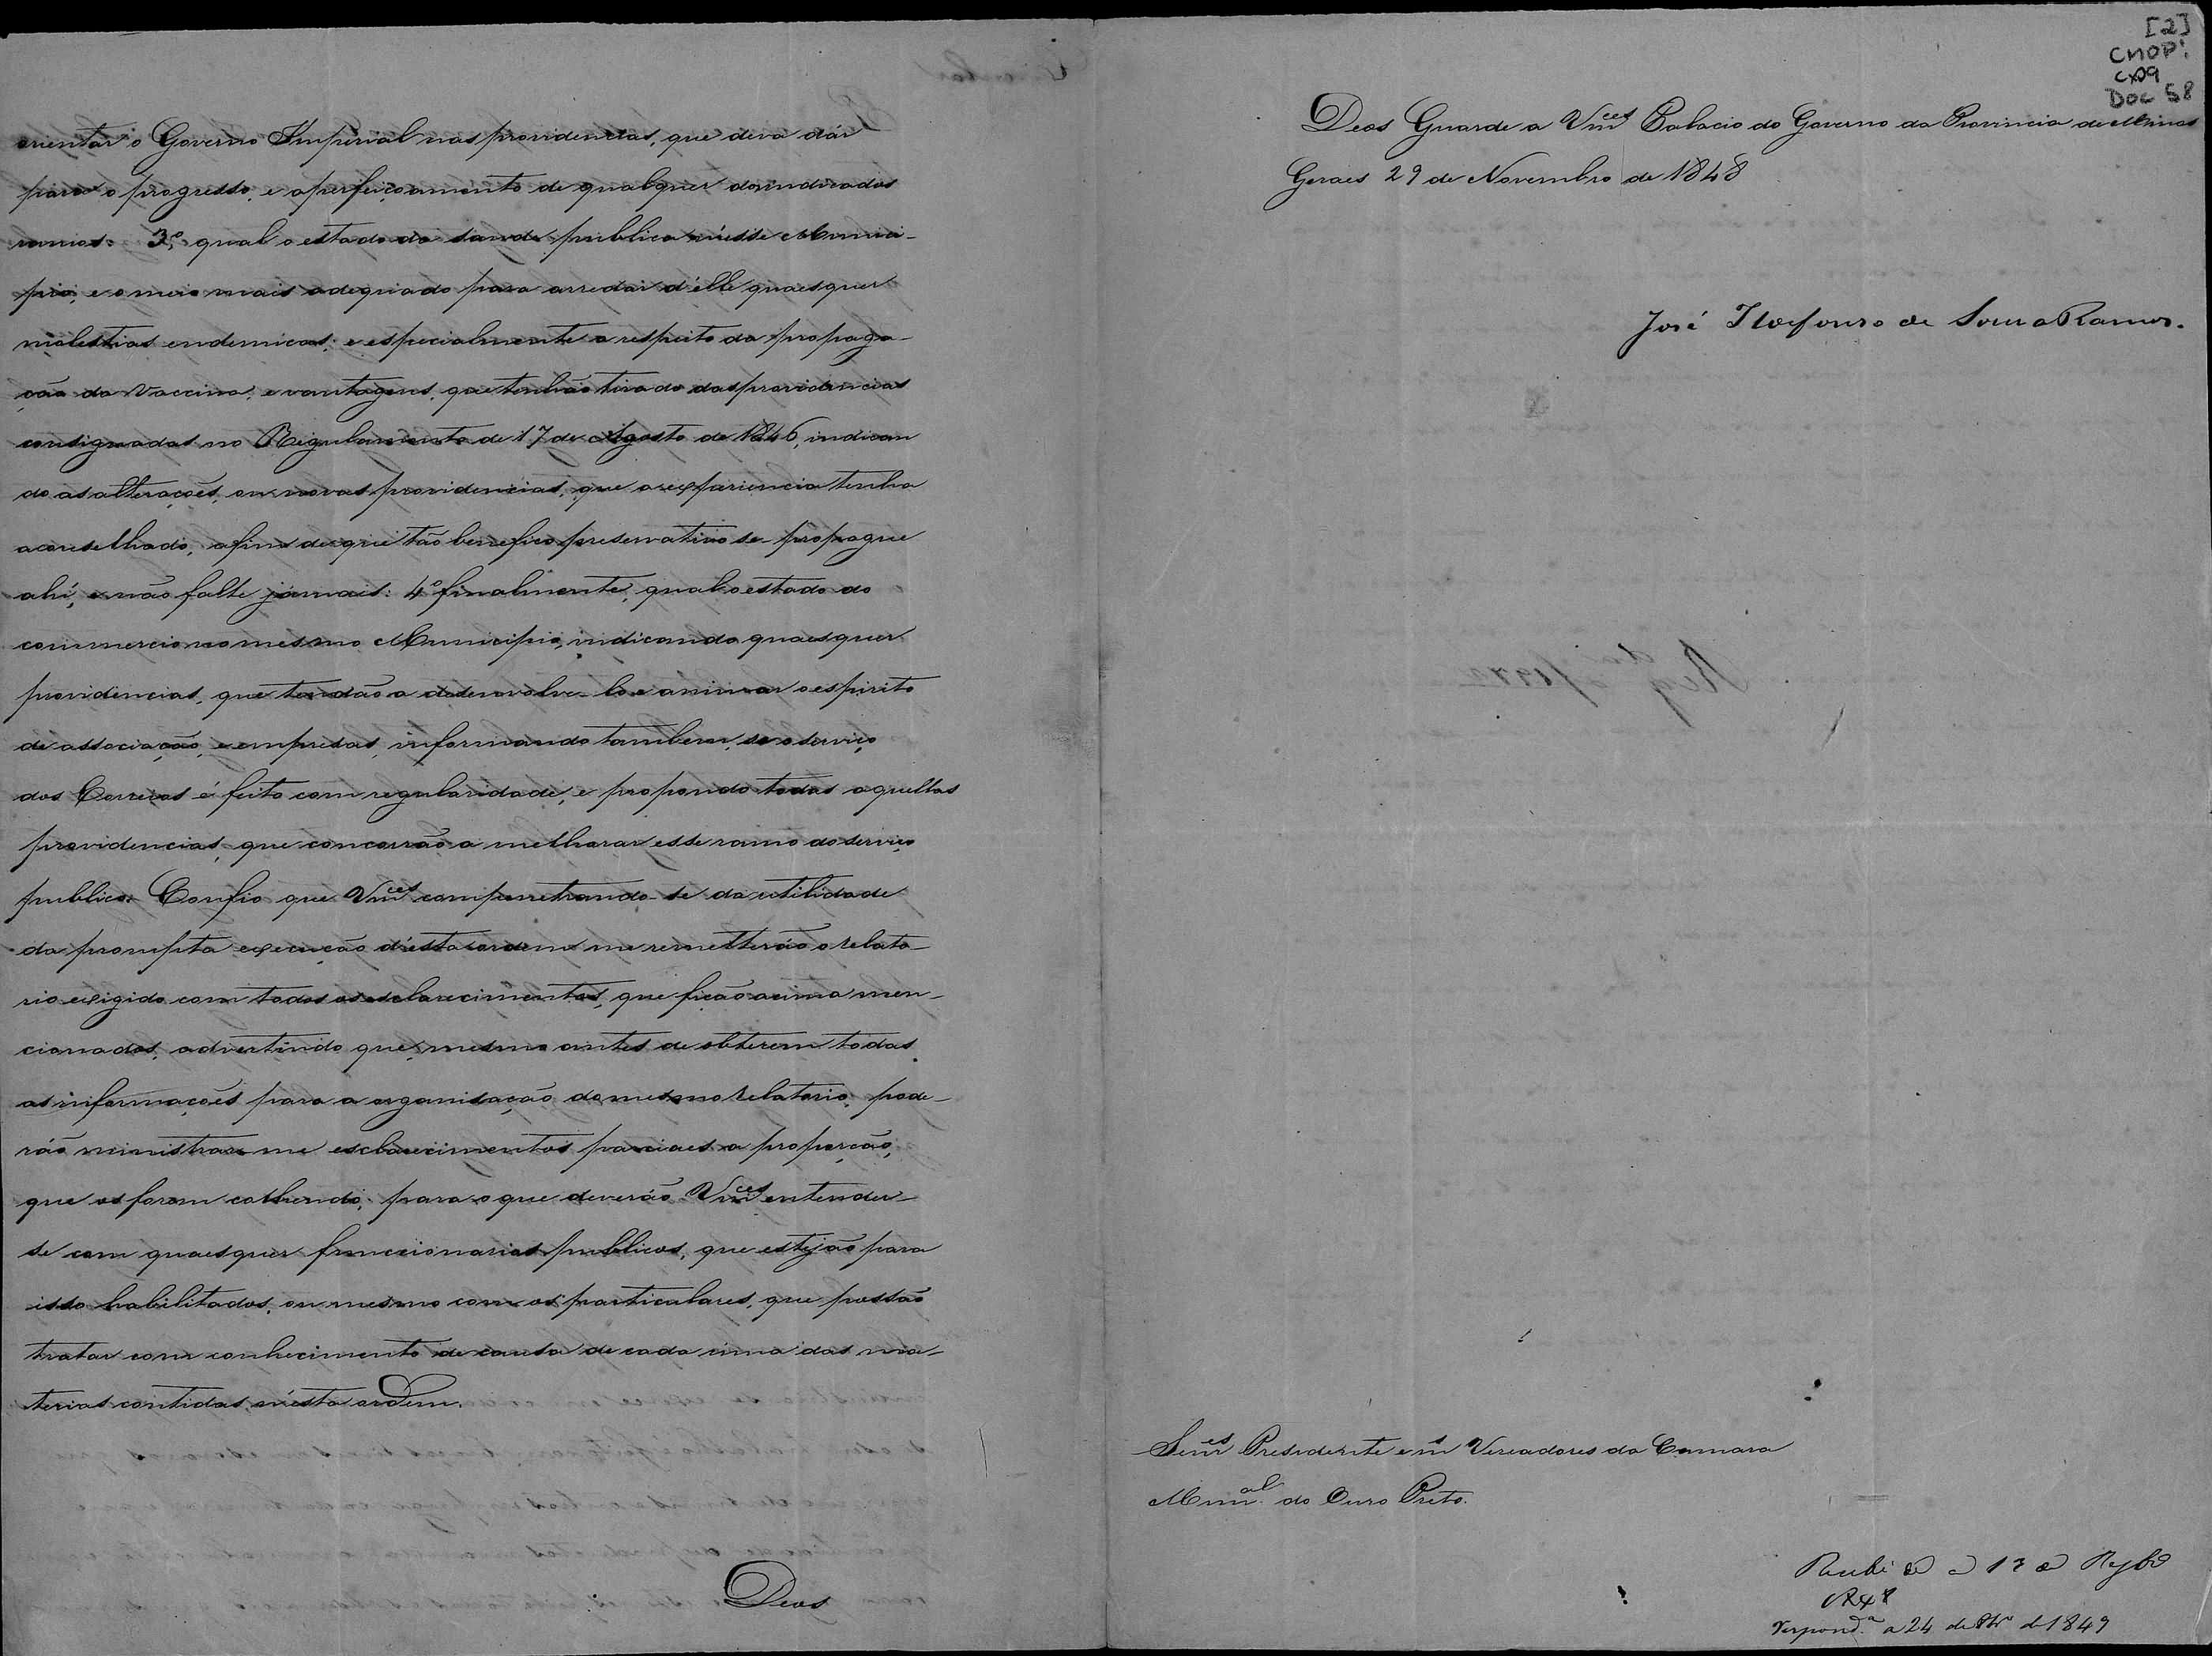 orientar o Governo Imperial nas providencias, que deva dár
para o progresso, e aperfeiçoamento de qualquer dos indicados
ramos: 3º, qual o estado da saude publica n'esse Munici-
pio, e o meio mais adequado para arredar d'elle quaesquer
molestias endemicas; e especialmente a respeito da propaga-
ção da Vaccina, e vantagens, que tenhão tirado das providencias
consignadas no Regulamento de 17 de Agosto de 1846, indican
do as alterações, ou novas providencias, que a experiencia tenha
aconselhado, afim de que tão benefico preservativo se propague
ahi, e não falte jamais: 4º finalmente, qual o estado do
commercio no mesmo Municipio, indicando quaesquer
providencias, que tendão a desenvolve-lo e animar o espirito
de associação, e empresas, informando tambem, se o serviço
dos Correios é feito com regularidade, e propondo todas aquellas
providencias, que concorrão a melhorar esse ramo do serviço
publico. Confio que Vm.ces compenetrando-se da utilidade
da prompta execução d'esta ordem me remetterão o relato-
rio exigido com todos os esclarecimentos, que ficão acima men-
cionados, advertindo que, mesmo antes de obterem todas
as informações para a organisação do mesmo relatorio, pode-
rão ministrar-me esclarecimentos parciaes a proporção,
que os forem colhendo; para o que deverão Vm.ces entender-
se com quaesquer funccionarios publicos, que estejão para
isso habilitados, ou mesmo com os particulares, que possão
tratar com conhecimento de causa de cada uma das ma-
terias contidas n'esta ordem.
Deos
[2]
CMOP
CX09
DOC 58
Deos Guarde a Vm.ces Palacio do Governo da Provincia de Minas
Geraes 29 de Novembro de 1848
José Ildefonso de Souza Ramos.
Senr.es Presidente e m.s Vereadores da Camara
Mun.al do Ouro Preto.
respond.a a 24 de de 1849